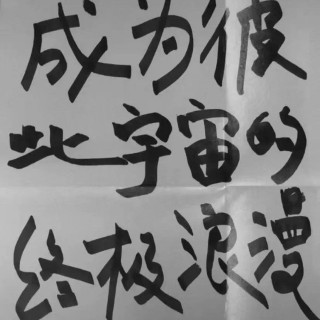 成为彼
此宇宙的
终极浪漫